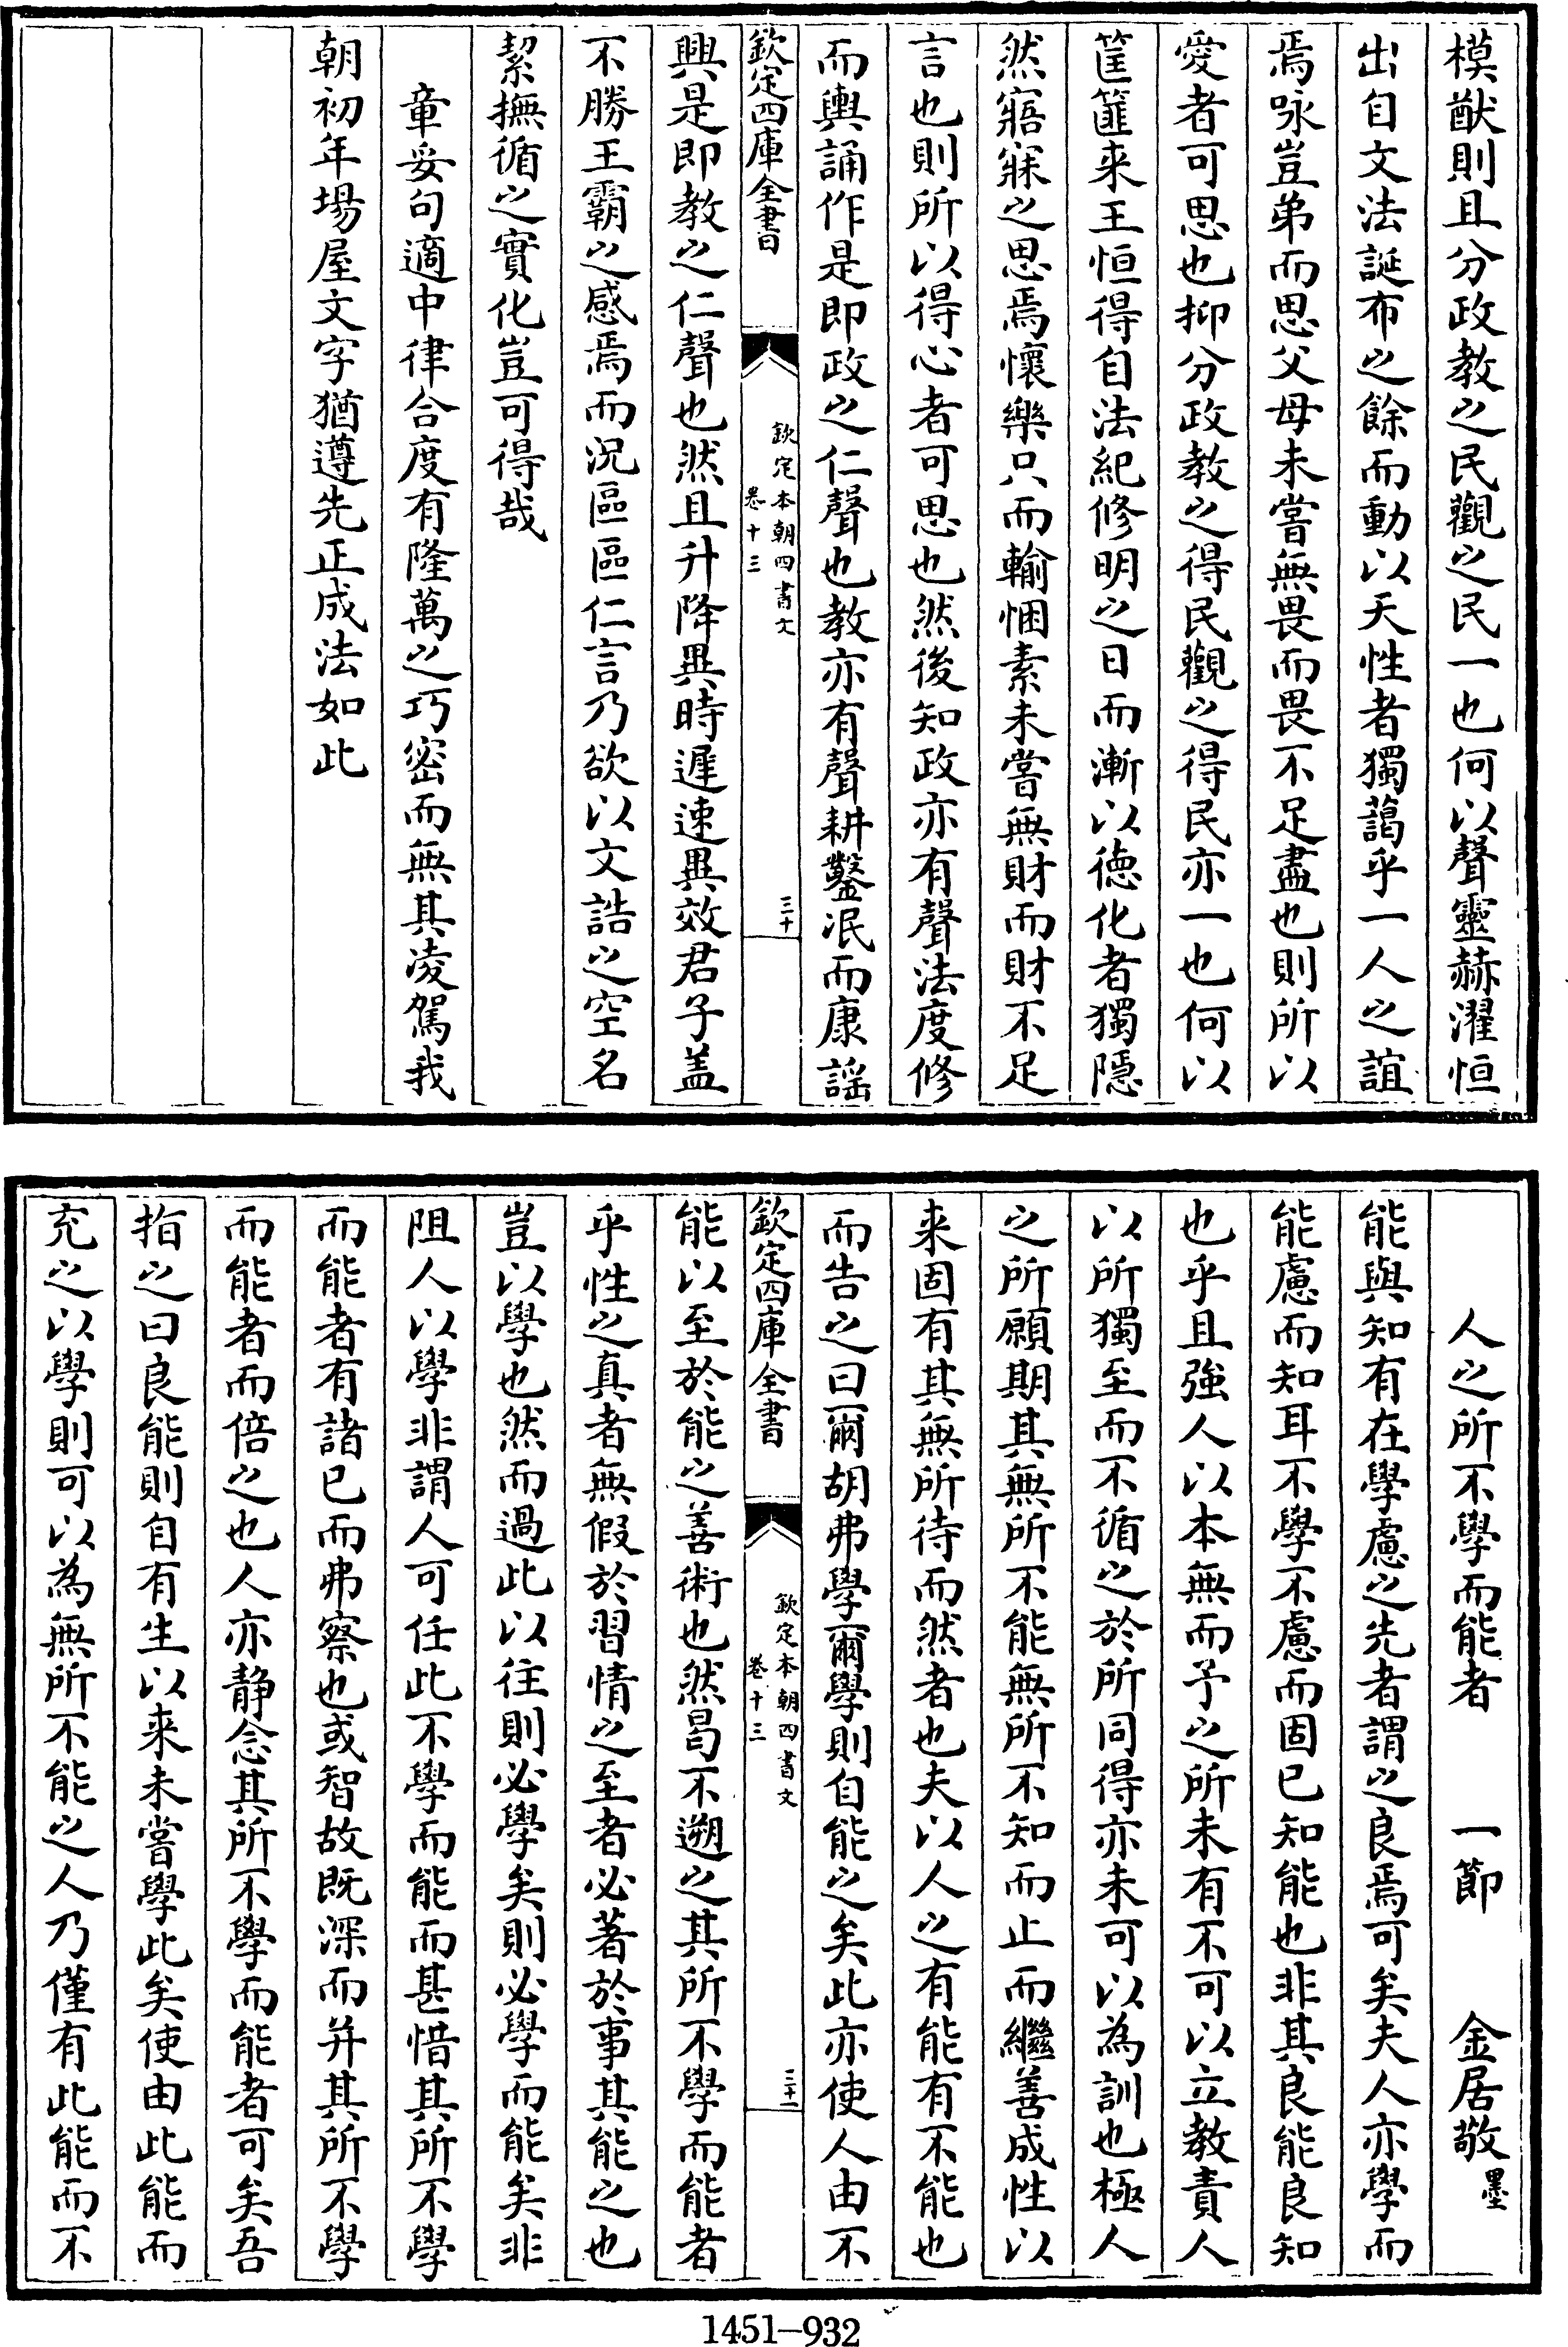 模猷則且分政教之民觀之民一也何以聲靈赫濯恒
出自文法誕布之餘而動以天性者獨藹乎一人之誼
焉咏豈弟而思父母未嘗無畏而畏不足盡也則所以
愛者可思也抑分政教之得民觀之得民亦一也何以
筐篚来王恒得自法紀修明之日而漸以德化者獨隠
然寤寐之思焉懷樂只而輸悃素未嘗無財而財不足
言也則所以得心者可思也然後知政亦有聲法度修
而輿誦作是即政之仁聲也教亦有聲耕鑿泯而康謡
欽定四庫全書
欽定本朝四書文
卷十三
三十
興是即教之仁聲也然且升降異時遲速異效君子盖
不勝王霸之感焉而况區區仁言乃欲以文誥之空名
絜撫循之實化豈可得哉
章妥句適中律合度有隆萬之巧密而無其凌駕我
朝初年場屋文字猶遵先正成法如此
人之所不學而能者 一節 金居敬墨
能與知有在學慮之先者謂之良焉可矣夫人亦學而
能慮而知耳不學不慮而固已知能也非其良能良知
也乎且強人以本無而予之所未有不可以立教責人
以所獨至而不循之於所同得亦未可以為訓也極人
之所願期其無所不能無所不知而止而繼善成性以
来固有其無所待而然者也夫以人之有能有不能也
而告之曰爾胡弗學爾學則自能之矣此亦使人由不
欽定四庫全書
欽定本朝四書文
卷十三
三十一
能以至於能之善術也然曷不遡之其所不學而能者
乎性之真者無假於習情之至者必著於事其能之也
豈以學也然而過此以往則必學矣則必學而能矣非
阻人以學非謂人可任此不學而能而甚惜其所不學
而能者有諸已而弗察也或智故既深而并其所不學
而能者而倍之也人亦静念其所不學而能者可矣吾
指之曰良能則自有生以来未嘗學此矣使由此能而
充之以學則可以為無所不能之人乃僅有此能而不
1451-932